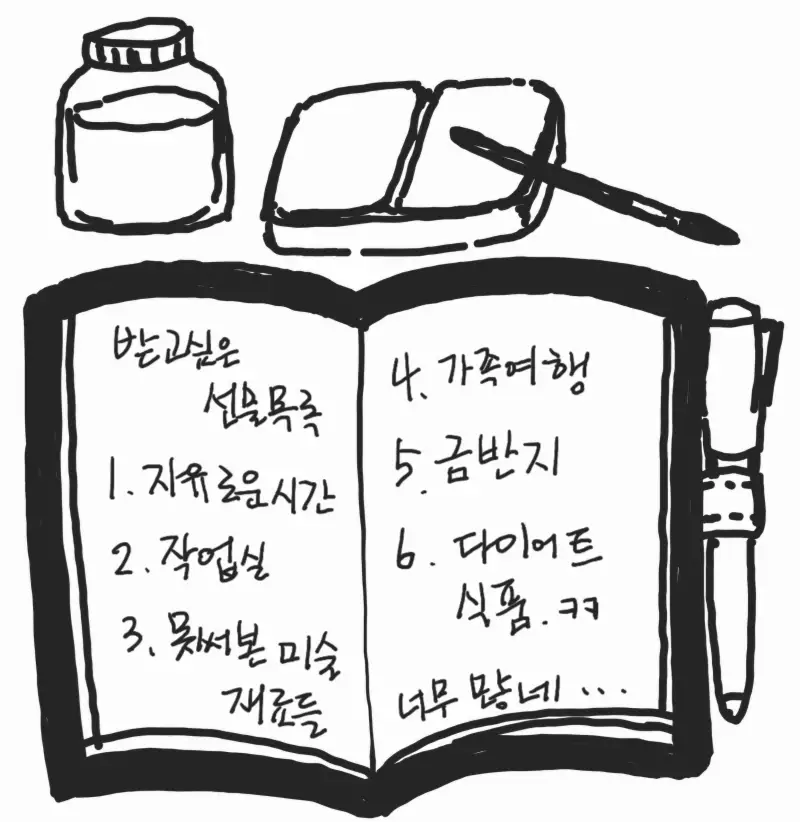 받고싶은
선물목록
1. 자유로운시간
2. 작업실
3. 못써본 미술
재료들
4. 가족여행
5. 금반지
6. 다이어트
식품. ㅋㅋ
너무 많네 ...